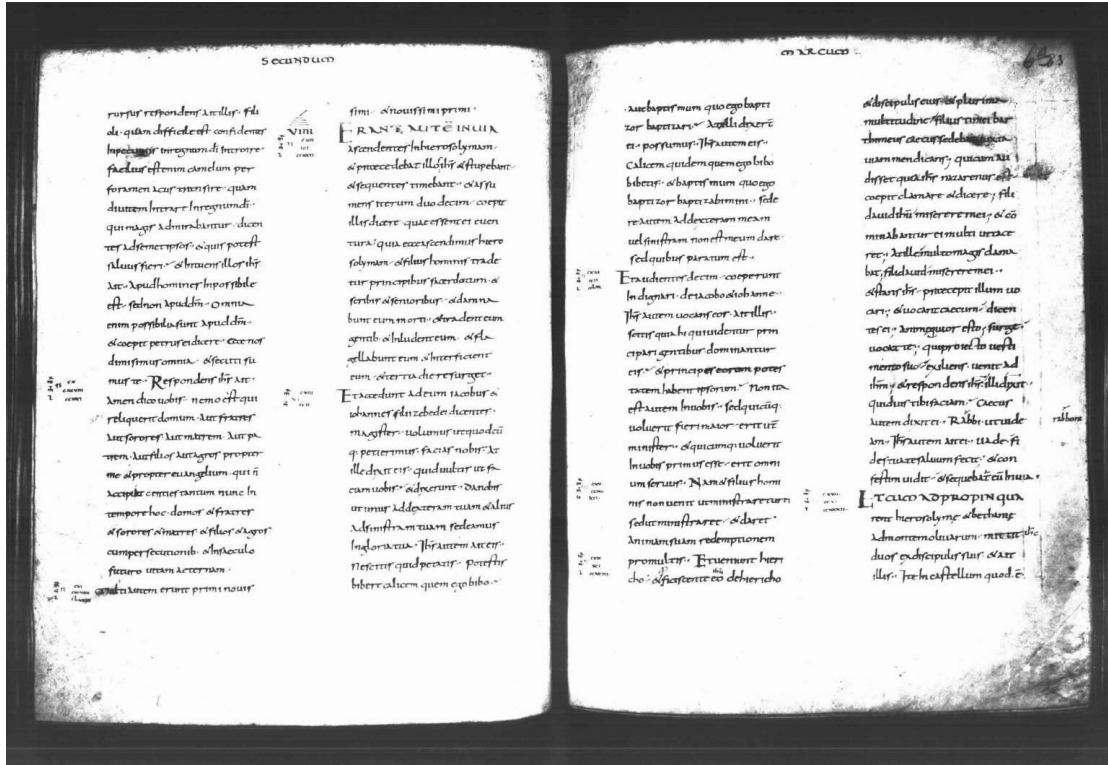 SECUNDUM
rursus respondens ait illis · fili
oli · quam difficile est confidentes
In pecuniis in regnum di Introire ·
facilius est enim camelum per
foramen acus transire · quam
diuitem Intrare In regnum di ·
qui magis admirabantur · dicen
tes ad semet ipsos · & quis potest
saluus fieri · & Intuens illos ihs
ait · Apud homines Inpossibile
est · sed non apud dm · Omnia
enim possibilia sunt apud dm ·
& coepit petrus ei dicere · Ecce nos
dimisimus omnia · & secuti su
mus te · Respondens ihs ait ·
Amen dico uobis · nemo est qui
reliquerit domum · Aut fratres
Aut sorores Aut matrem · Aut pa
trem · Aut filios Aut agros propter
me & propter euangelium · qui n
accipiat centies tantum nunc In
tempore hoc · domos & fratres
& sorores & matres & filios & agros
cum persecutionib · & In saeculo
futuro uitam aeternam ·
multi autem erunt primi nouis
VIIII
simi · & nouissimi primi ·
ERANT AUTE IN UIA
Ascendentes In hierosolymam ·
& praecedebat illos ihs & stupebant ·
& sequentes timebant · & assu
mens iterum duodecim · coepit
illis dicere quae essent ei euen
tura · quia ecce ascendimus hiero
solymam · & filius hominis trade
tur principibus sacerdotum · &
scribis & senioribus · & damna
bunt eum morti · & tradent eum
gentib · & Inludent eum · & fla
gellabunt eum & Interficient
eum · & tertia die resurget ·
Et accedunt ad eum iacobus &
iohannes filii zebedei dicentes ·
magister · uolumus ut quodcu
q; petierimus · facias nobis · At
ille dixit eis · quid uultis ut fa
ciam uobis · & dixerunt · Da nobis
ut unus ad dexteram tuam & alius
Ad sinistram tuam sedeamus
In gloria tua · Ihs autem ait eis ·
Nescitis quid petatis · Potestis
bibere calicem quem ego bibo ·
MARCUM
83
· aut baptismum quo ego bapti
zor baptizari · At illi dixer
ei · possumus · Ihs autem eis ·
Calicem quidem quem ego bibo
bibetis · & baptismum quo ego
baptizor baptizabimini · sede
re autem ad dexteram meam
uel sinistram non est meum dare ·
sed quibus paratum est ·
Et audientes decem · coeperunt
Indignari · de iacobo & iohanne ·
Ihs autem uocans eos · ait illis ·
scitis quia hi qui uidentur prin
cipari gentibus dominantur
eis · & principes eorum potes
tatem habent ipsorum · Non ita
est autem In uobis · sed quicuq;
uoluerit fieri maior · erit ur
minister · & quicumq; uoluerit
In uobis primus esse · erit omni
um seruus · Nam & filius homi
nis non uenit ut ministraretur ei
sed ut ministraret · & daret
Animam suam redemptionem
pro multis · Et uenerunt hieri
cho · & proficiscente eo de hiericho
& discipulis eius · & plurima
multitudine / filius timei bar
thimeus caecus sedebat iuxta
uiam mendicans ; qui cum au
disset quia ihs nazarenus est
coepit clamare & dicere ; fili
dauid ihu miserere mei ; & co
minabantur ei multi ut tace
ret ; At ille multo magis clama
bat ; fili dauid miserere mei ·
& stans ihs · praecepit illum uo
cari ; & uocant caecum · dicen
tes ei · animequior esto ; surge
uocat te ; qui proiecto uesti
mento suo · exiliens · uenit ad
ihm ; & respondens ihs · illi dixit ·
quid uis tibi faciam · Caecus
autem dixit ei · Rabbi · ut uide
am · Ihs autem ait ei · uade · fi
des tua te saluum fecit · & con
festim uidit · & sequebatur eu In uia ·
rabboni
ET CUM ADPROPINQUA
rent hierosolyme & bethanie
Ad montem oliuarum · mittit
duos ex discipulis suis · & ait
illis · Ite In castellum quod · e